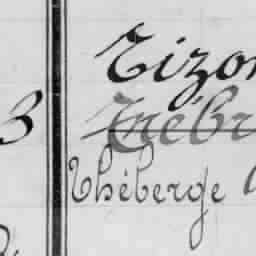 Tizon
3 Trébr
Théberge